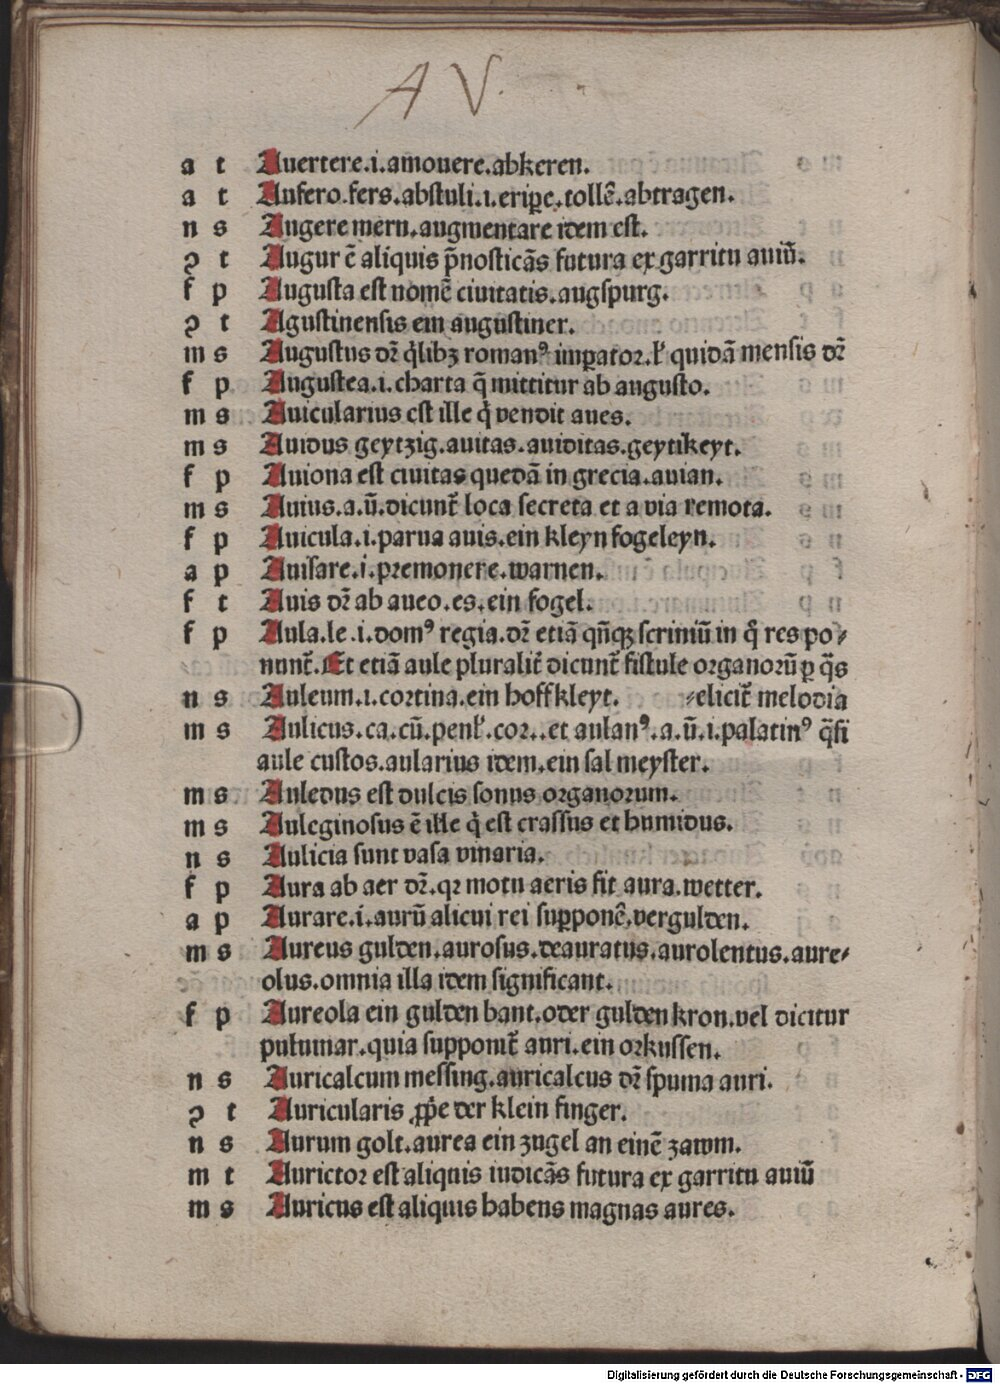 A V.
a t Auertere.i.amouere.abkeren.
a t Aufero.fers.abstuli.i.eriꝑe.tollẽ.abtragen.
n s Augere mern.augmentare idem est.
ꝯ t Augur ẽ aliquis p̃nosticãs futura ex garritu auiũ.
f p Augusta est nomẽ ciuitatis.augspurg.
ꝯ t Agustinensis ein augustiner.
m s Augustus dr̃ q̃libꝫ romanꝰ imꝑator.ł quidã mensis dr̃
f p Augustea.i.charta q̃ mittitur ab augusto.
m s Auicularius est ille q̇ vendit aues.
m s Auidus geytzig.auitas.auiditas.geytikeyt.
f p Auiona est ciuitas quedã in grecia.auian.
m s Auius.a.ũ.dicunt̃ loca secreta et a via remota.
f p Auicula.i.parua auis.ein kleyn fogeleyn.
a p Auisare.i.premonere.warnen.
f t Auis dr̃ ab aueo.es.ein fogel.
f p Aula.le.i.domꝰ regia.dr̃ etiã qñqꝫ scriniũ in q̃ res po⸗
nunt̃.Et etiã aule pluralit̃ dicunt̃ fistule organorũ ꝑ q̃s
n s Auleum.i.cortina.ein hoffkleyt. ⸗elicit̃ melodia
m s Aulicus.ca.cũ.penł.cor..et aulanꝰ.a.ũ.i.palatinꝰ q̃si
aule custos.aularius idem.ein sal meyster.
m s Auledus est dulcis sonus organorum.
m s Auleginosus ẽ ille q̇ est crassus et humidus.
n s Aulicia sunt vasa vinaria.
f p Aura ab aer dr̃.qꝛ motu aeris fit aura.wetter.
a p Aurare.i.aurũ alicui rei supponẽ.vergulden.
m s Aureus gulden.aurosus.deauratus.aurolentus.aure⸗
olus.omnia illa idem significant.
f p Aureola ein gulden bant.oder gulden kron.vel dicitur
puluinar.quia supponit̃ auri.ein orkussen.
n s Auricalcum messing.auricalcus dr̃ spuma auri.
ꝯ t Auricularis ꝓp̃e der klein finger.
n s Aurum golt.aurea ein zugel an einẽ zawm.
m t Aurictor est aliquis iudicãs futura ex garritu auiũ
m s Auricus est aliquis habens magnas aures.
Digitalisierung gefördert durch die Deutsche Forschungsgemeinschaft - DFG